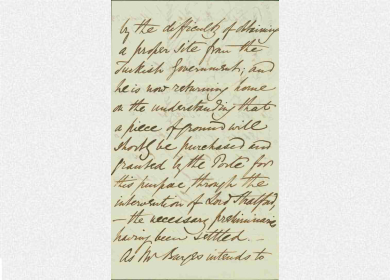 by the difficulty of obtaining
a proper site from the
Turkish Government; and
he is now returning home
on the understanding that
a piece of ground will
shortly be purchased and
granted by the Porte for
this purpose through the
intervention of Lord Stratford,
– the necessary preliminaries
having been settled. –
As Mr Burges intends to